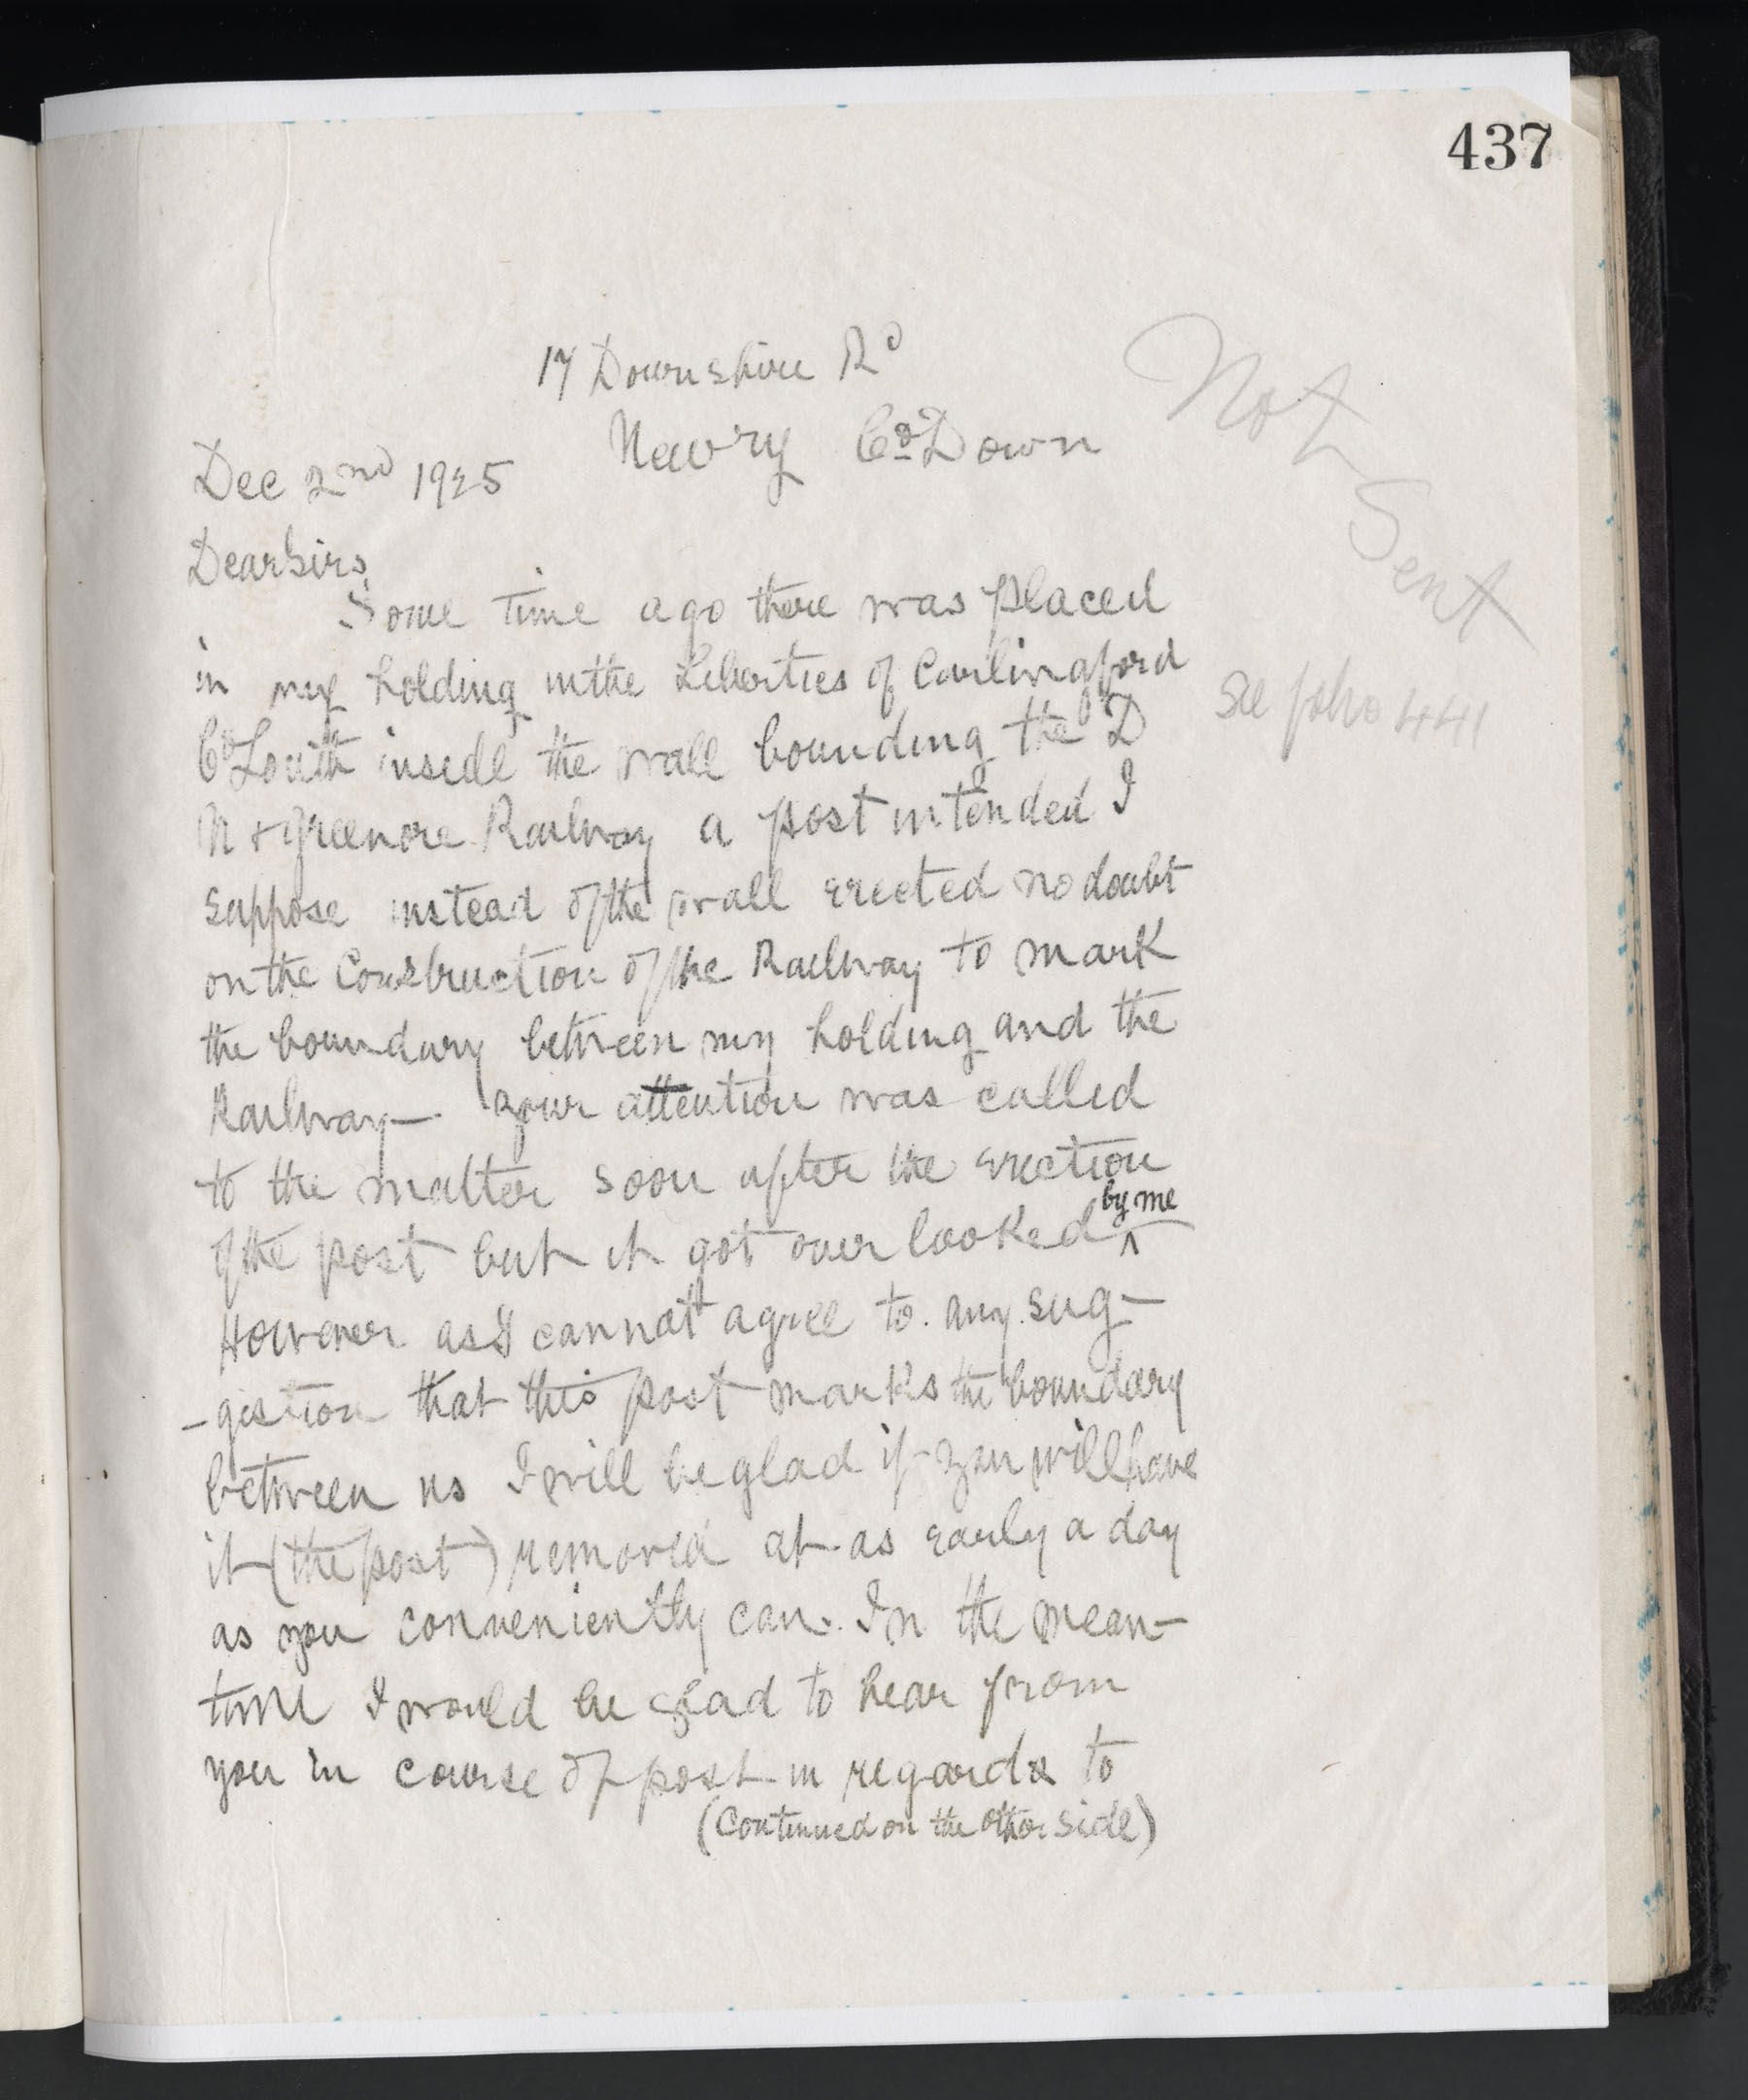 437
17 Downshire Rd
Newry Co Down
Not Sent
Dec 2nd 1925
Dear Sirs
Some time ago there was placed
in my holding in the Liberties of Carlingford
See folio 441
Co Louth inside the wall bounding the D
N & Greenore Railway a post intended I
suppose instead of the wall erected no doubt
on the Construction of the Railway to mark
the boundary between my holding and the
Railway — your attention was called
to the matter soon after the erection
of the post but it got over looked ^by me
However as I cannot agree to any sug-
-gestion that this post marks the boundary
between us I will be glad if you will have
it (the post) removed at as early a day
as you conveniently can. In the mean-
time I would be glad to hear from
you in course of post in regards to
(Continued on the other side)